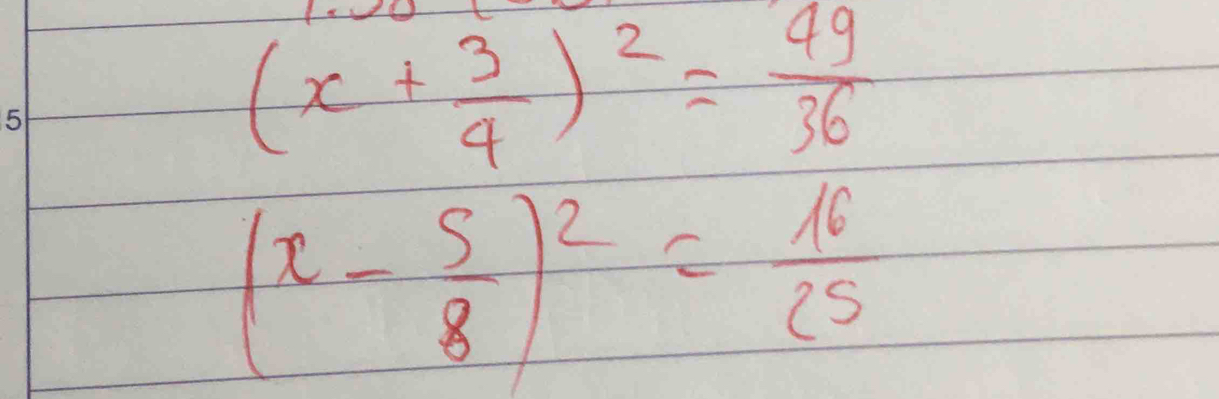 5
(x + 3/4)² = 49/36
(x - 5/8)² = 16/25